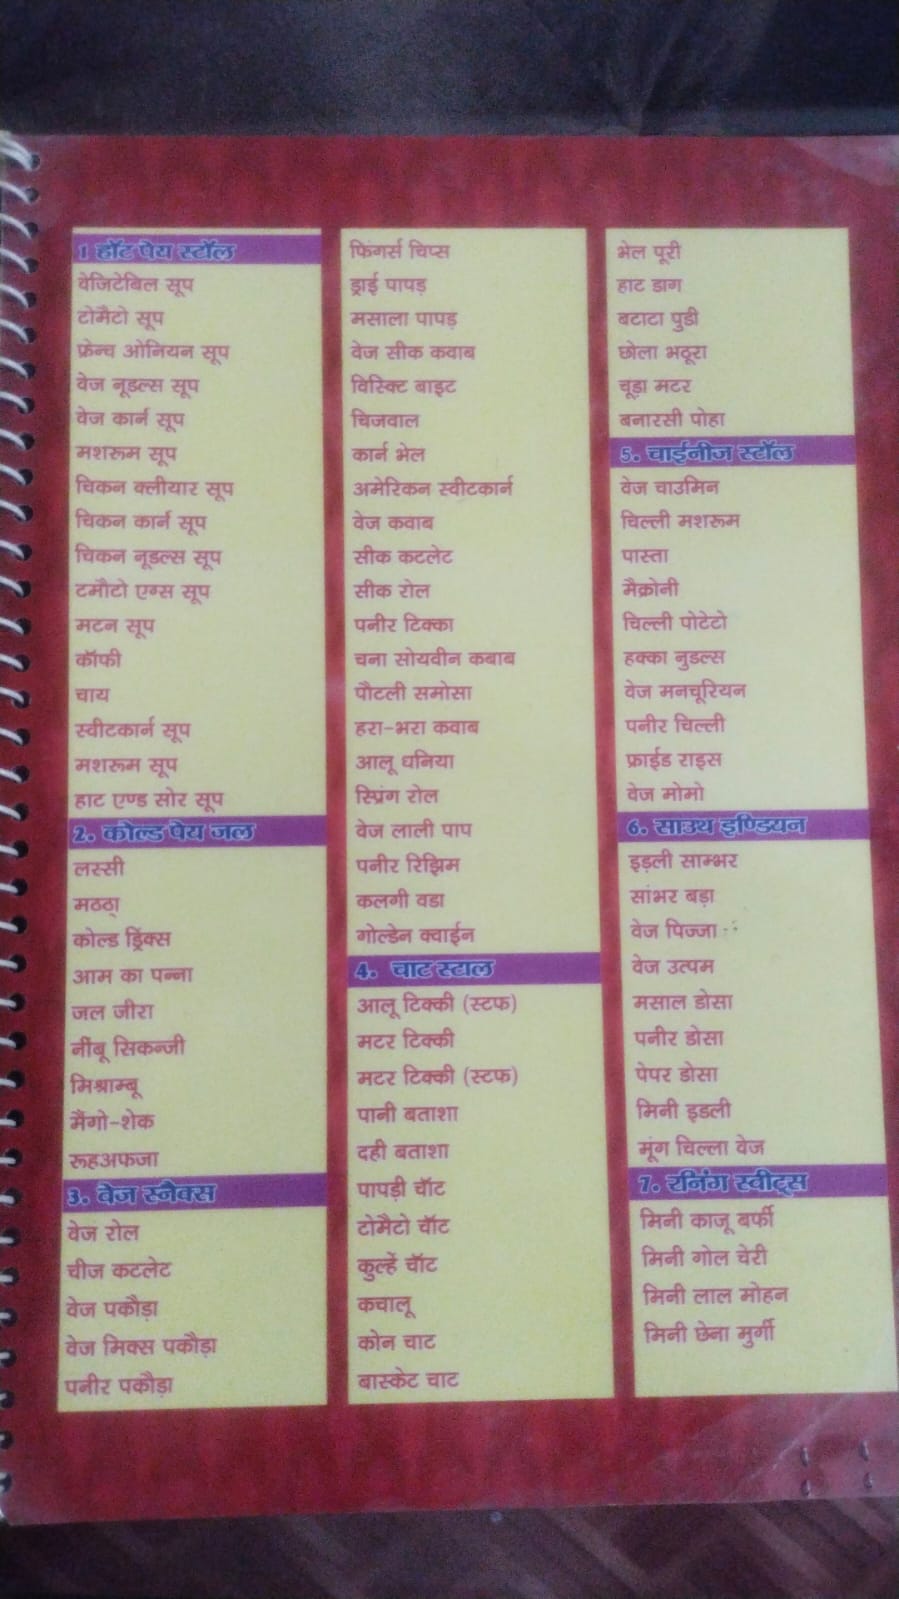 1 हॉट पेय स्टॉल
वेजिटेबिल सूप
टोमैटो सूप
फ्रेन्च ओनियन सूप
वेज नूडल्स सूप
वेज कार्न सूप
मशरूम सूप
चिकन क्लीयार सूप
चिकन कार्न सूप
चिकन नूडल्स सूप
टमौटो एग्स सूप
मटन सूप
कॉफी
चाय
स्वीटकार्न सूप
मशरूम सूप
हाट एण्ड सोर सूप
2. कोल्ड पेय जल
लस्सी
मठठा्
कोल्ड ड्रिंक्स
आम का पन्ना
जल जीरा
नींबू सिकन्जी
मिश्राम्बू
मैंगो-शेक
रूहअफजा
3. वेज स्नैक्स
वेज रोल
चीज कटलेट
वेज पकौड़ा
वेज मिक्स पकौड़ा
पनीर पकौड़ा
फिंगर्स चिप्स
ड्राई पापड़
मसाला पापड़
वेज सीक कवाब
विस्क्टि बाइट
चिजवाल
कार्न भेल
अमेरिकन स्वीटकार्न
वेज कवाब
सीक कटलेट
सीक रोल
पनीर टिक्का
चना सोयवीन कबाब
पौटली समोसा
हरा-भरा कवाब
आलू धनिया
स्प्रिंग रोल
वेज लाली पाप
पनीर रिझिम
कलगी वडा
गोल्डेन क्वाईन
4. चाट स्टाल
आलू टिक्की (स्टफ)
मटर टिक्की
मटर टिक्की (स्टफ)
पानी बताशा
दही बताशा
पापड़ी चॉट
टोमैटो चॉट
कुल्हें चॉट
कचालू
कोन चाट
बास्केट चाट
भेल पूरी
हाट डाग
बटाटा पुडी
छोला भठूरा
चूड़ा मटर
बनारसी पोहा
5. चाईनीज स्टॉल
वेज चाउमिन
चिल्ली मशरूम
पास्ता
मैक्रोनी
चिल्ली पोटेटो
हक्का नुडल्स
वेज मनचूरियन
पनीर चिल्ली
फ्राईड राइस
वेज मोमो
6. साउथ इण्डियन
इड़ली साम्भर
सांभर बड़ा
वेज पिज्जा
वेज उत्पम
मसाल डोसा
पनीर डोसा
पेपर डोसा
मिनी इडली
मूंग चिल्ला वेज
7. रनिंग स्वीट्स
मिनी काजू बर्फी
मिनी गोल चेरी
मिनी लाल मोहन
मिनी छेना मुर्गी